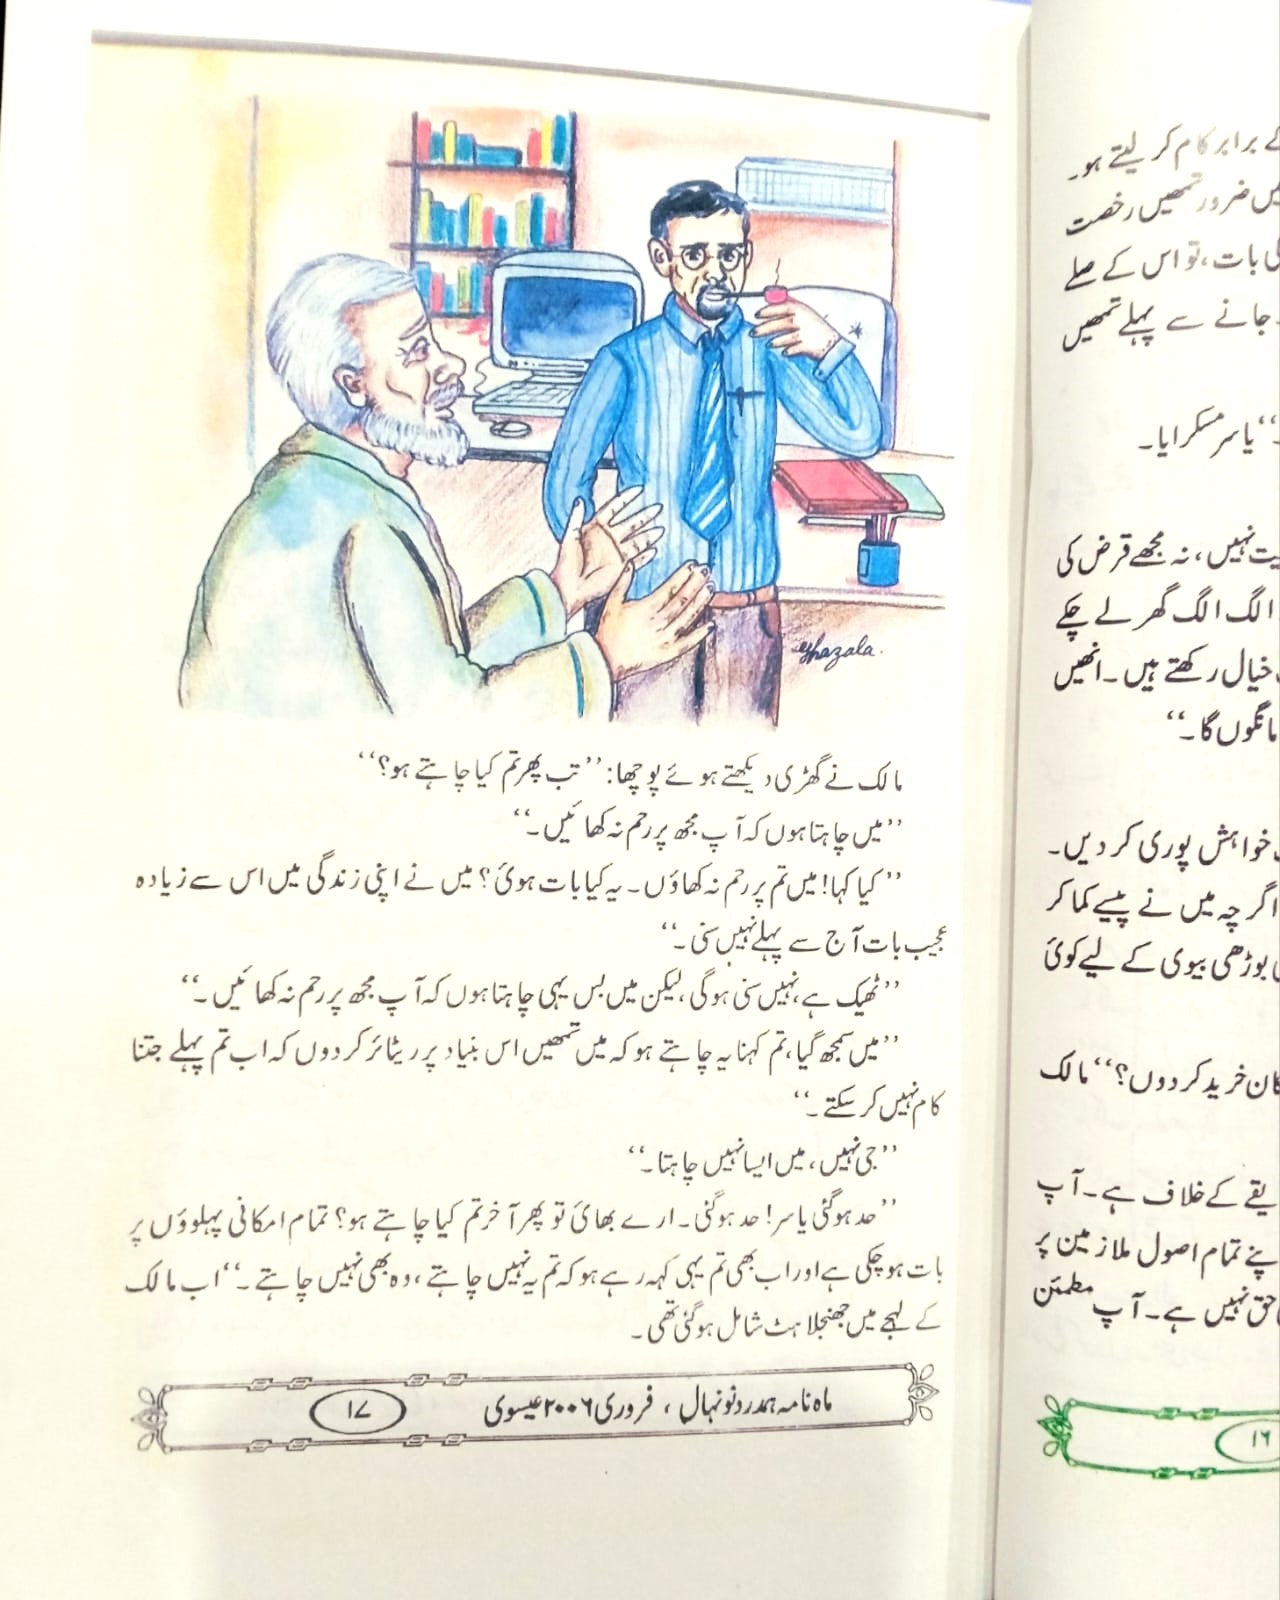 Ghazala.
مالک نے گھڑی دیکھتے ہوئے پوچھا: ’’تب پھر تم کیا چاہتے ہو؟‘‘
’’میں چاہتا ہوں کہ آپ مجھ پر رحم نہ کھائیں۔‘‘
’’کیا کہا! میں تم پر رحم نہ کھاؤں۔ یہ کیا بات ہوئی؟ میں نے اپنی زندگی میں اس سے زیادہ
عجیب بات آج سے پہلے نہیں سنی۔‘‘
’’ٹھیک ہے، نہیں سنی ہوگی، لیکن میں بس یہی چاہتا ہوں کہ آپ مجھ پر رحم نہ کھائیں۔‘‘
’’میں سمجھ گیا، تم کہنا یہ چاہتے ہو کہ میں تمھیں اس بنیاد پر ریٹائر کر دوں کہ اب تم پہلے جتنا
کام نہیں کر سکتے۔‘‘
’’جی نہیں، میں ایسا نہیں چاہتا۔‘‘
’’حد ہوگئی یاسر! حد ہوگئی۔ ارے بھائی تو پھر آخر تم کیا چاہتے ہو؟ تمام امکانی پہلوؤں پر
بات ہو چکی ہے اور اب بھی تم یہی کہہ رہے ہو کہ تم یہ نہیں چاہتے، وہ بھی نہیں چاہتے۔‘‘ اب مالک
کے لہجے میں جھنجلاہٹ شامل ہوگئی تھی۔
ماہ نامہ ہمدرد نونہال، فروری ۲۰۰۶ عیسوی
۱۷
برابر کام کر لیتے ہو۔
ضرور تمھیں رخصت
بات، تو اس کے صلے
جانے سے پہلے تمھیں
‘‘ یاسر مسکرایا۔
نہیں، نہ مجھے قرض کی
الگ الگ گھر لے چکے
خیال رکھتے ہیں۔ انھیں
مانگوں گا۔‘‘
خواہش پوری کر دیں۔
اگرچہ میں نے پیسے کما کر
بوڑھی بیوی کے لیے کوئی
خرید کر دوں؟‘‘ مالک
کے خلاف ہے۔ آپ
تمام اصول ملازمین پر
حق نہیں ہے۔ آپ مطمئن
۱۶